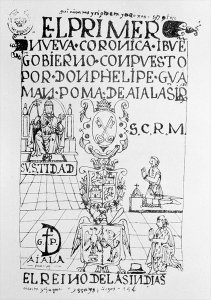 EL PRIMER
NVEVA CORONICA I BVE
GOBIERNO CONPVESTO
POR DON PHELIPE GVA
MAN POMA DE AIALA SIR
S.C.R.M.
SVSTIDAD
G P
AIALA
EL REINO DE LAS INDIAS